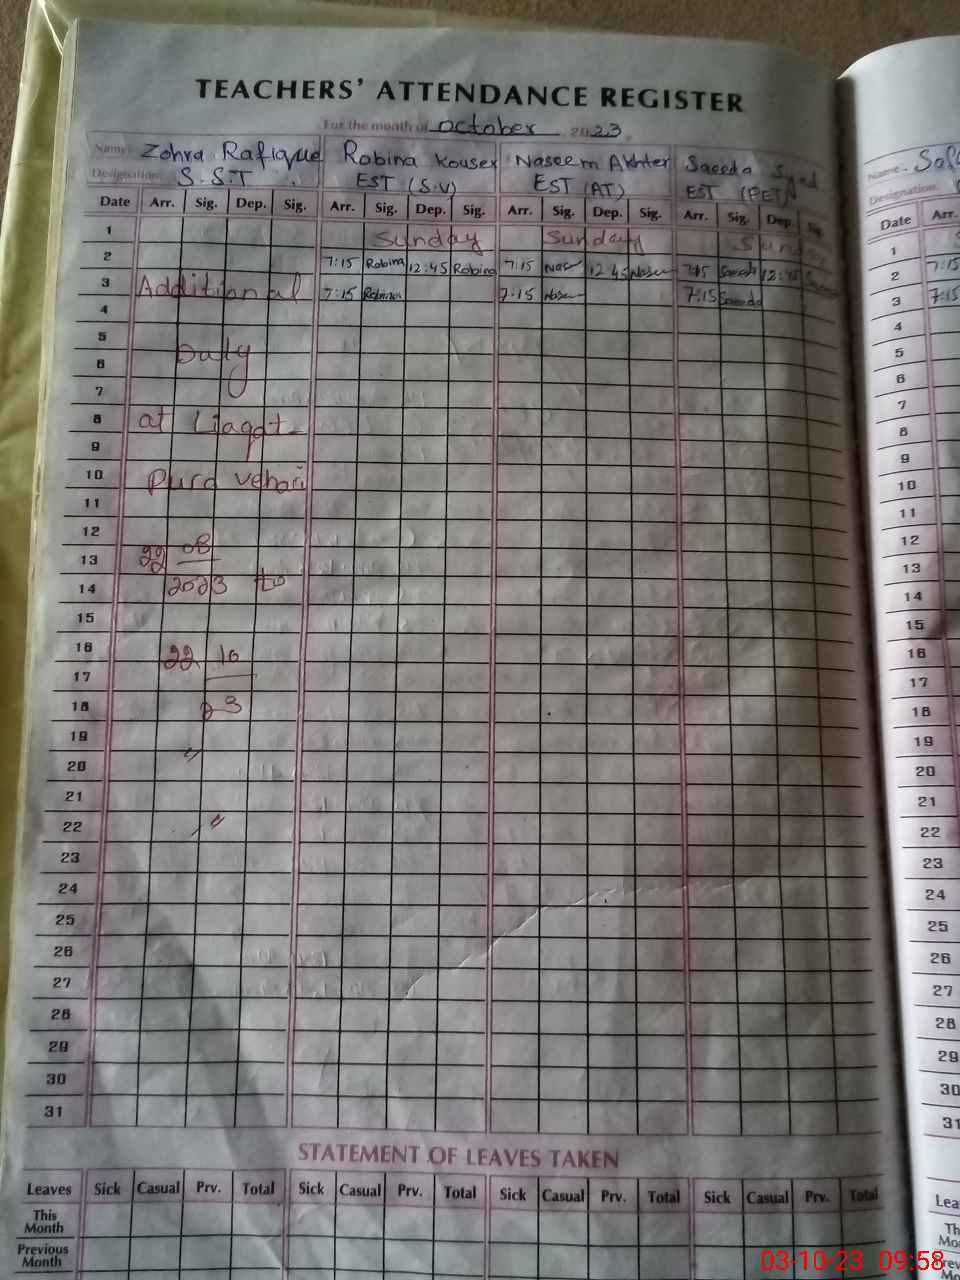 TEACHERS' ATTENDANCE REGISTER
For the month of October 2023
Name: Zohra Rafique Robina Kouser Naseem Akhter Saeeda Syed Name.
Designation: S.S.T EST (S.V) EST (AT) EST (PET) Designation.
Date Arr. Sig. Dep. Sig. Arr. Sig. Dep. Sig. Arr. Sig. Dep. Sig. Arr. Sig. Dep. Sig. Date Arr.
1 Sunday Sunday Sunday 1
2 7:15 Robina 12:45 Robina 7:15 12:45 7:15 Saeeda 12:45 2 7:15
3 Additional 7:15 Robina 7:15 7:15 Saeeda 3 7:15
4 4
5 5
6 Duty 6
7 7
8 at Liaqat 8
9 9
10 Pura vehari 10
11 11
12 12
13 22 08 13
14 2023 to 14
15 15
16 22 10 16
17 17
18 23 18
19 19
20 〃 20
21 21
22 〃 22
23 23
24 24
25 25
26 26
27 27
28 28
29 29
30 30
31 31
STATEMENT OF LEAVES TAKEN
Leaves Sick Casual Prv. Total Sick Casual Prv. Total Sick Casual Prv. Total Sick Casual Prv. Total
This Month
Previous Month
03-10-23 09:58